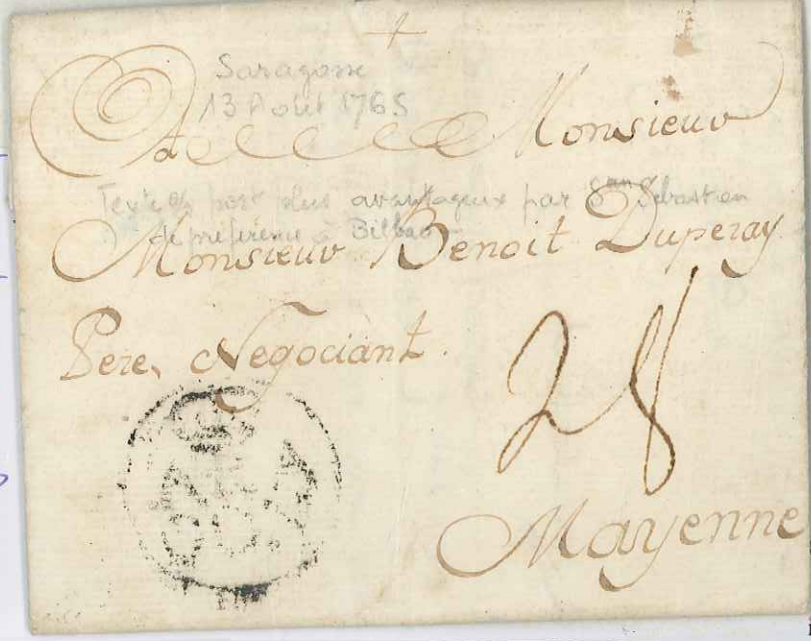 Saragosse
13 Aout 1765
A Monsieur
Texte port plus avantageux par San Sebastien
de preference à Bilbao
Monsieur Benoit Duperay
Pere, Negociant.
28
ARA
GON
Mayenne